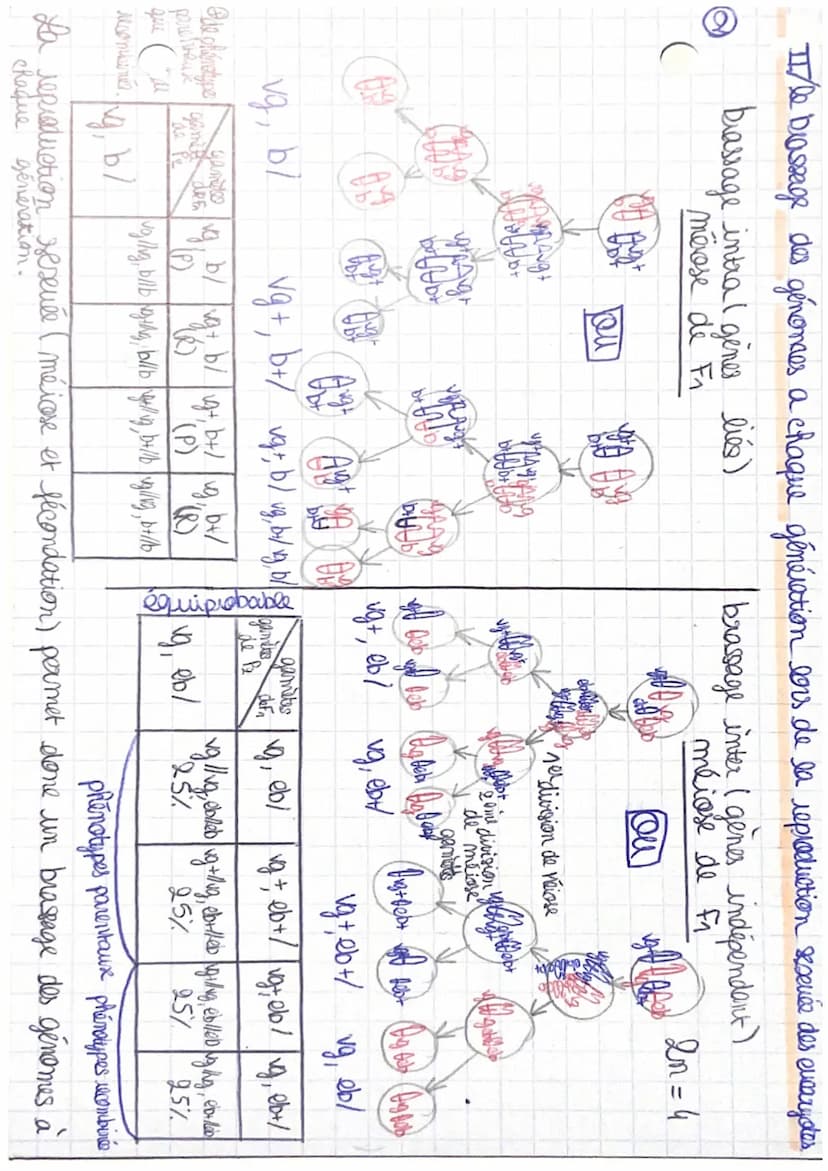 II/ le brassage des génomes a chaque génération lors de la reproduction sexuée des eucaryotes
brassage intra (gènes liés)
méiose de F1
OU
vg, b/
vg+, b+/
vg+, b/
vg, b+/
vg, b/
gamètes de F1
gamètes de P2
vg, b/ (P)
vg+ b/ (R)
vg+, b+/ (P)
vg, b+/ (R)
vg, b/
vg//vg, b//b
vg+//vg, b//b
vg+//vg, b+//b
vg//vg, b+//b
brassage inter (gènes indépendant)
méiose de F1
2n = 4
OU
1e division de méiose
2ème division de méiose
gamètes
vg+, eb/
vg, eb+/
vg+, eb+/
vg, eb/
équiprobable
gamètes de F1
gamètes de P2
vg, eb/
vg+, eb+/
vg+ eb/
vg, eb+/
vg, eb/
vg//vg, eb//eb 25%
vg+//vg, eb+//eb 25%
vg+//vg, eb//eb 25%
vg//vg, eb+//eb 25%
phénotypes parentaux
phénotypes recombinés
La reproduction sexuée (méiose et fécondation) permet donc un brassage des génomes à
chaque génération.